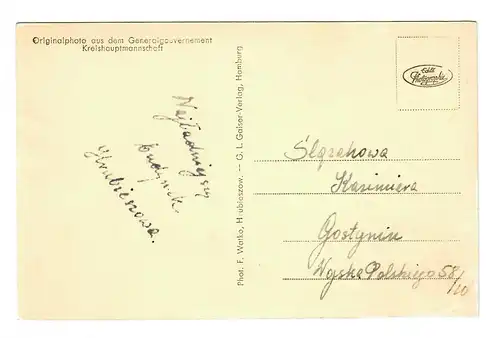 Originalphoto aus dem Generalgouvernement
Kreishauptmannschaft
Najładniejszy
budynek
Hrubieszowa.
Phot. F. Watko, Hrubieszow. — G. L. Geiser-Verlag, Hamburg
Echte
Photographie
Ślązakowa
Kazimiera
Gostynin
Wojska Polskiego 58/10